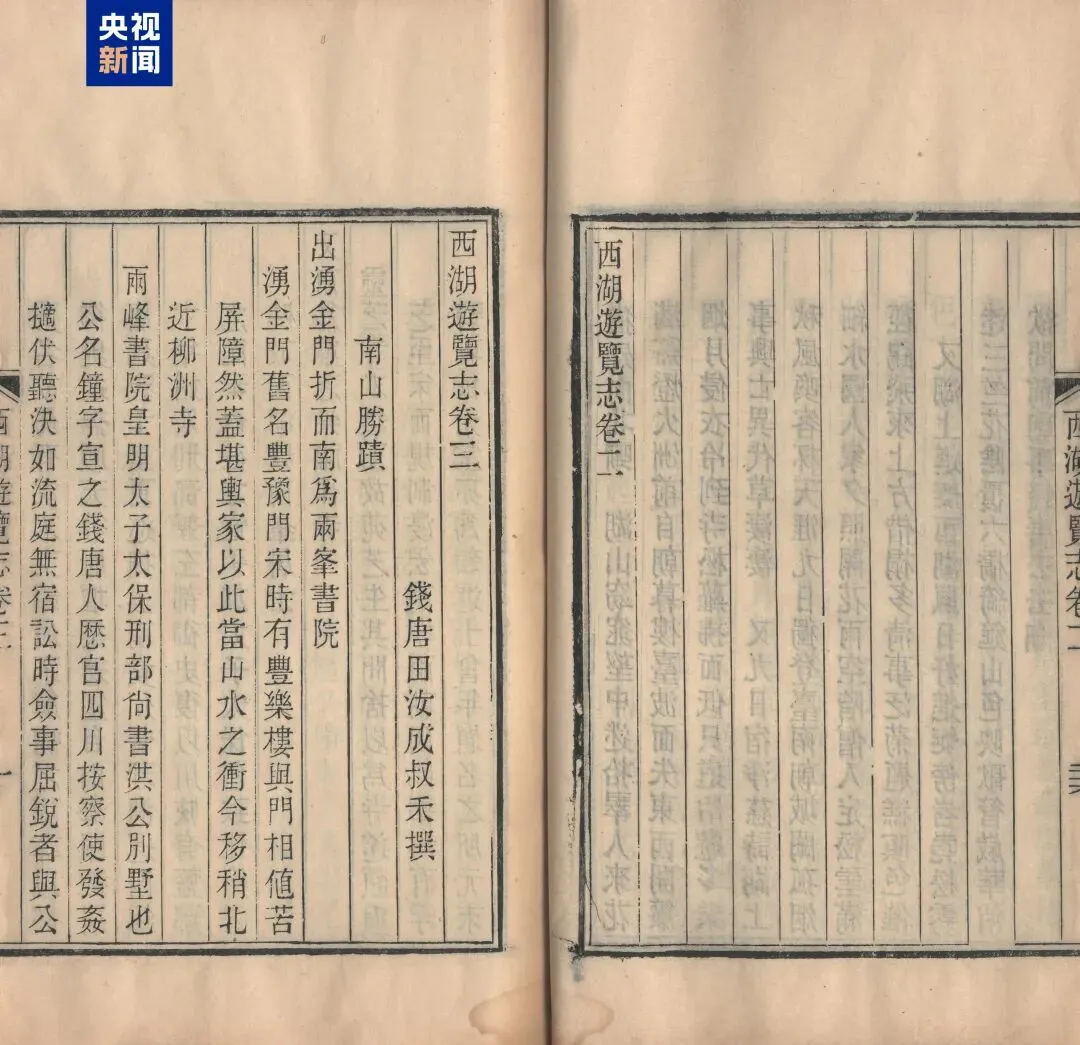 央视
新闻
西湖遊覽志卷二
西湖遊覽志卷二
西湖遊覽志卷三
錢唐田汝成叔禾撰
南山勝蹟
出湧金門折而南爲兩峯書院
湧金門舊名豐豫門宋時有豐樂樓與門相値苦
屏障然蓋堪輿家以此當山水之衝今移稍北
近柳洲寺
兩峰書院皇明太子太保刑部尙書洪公別墅也
公名鐘字宣之錢唐人歷官四川按察使發姦
擿伏聽決如流庭無宿訟時僉事屈銳者與公
西湖遊覽志卷三
一